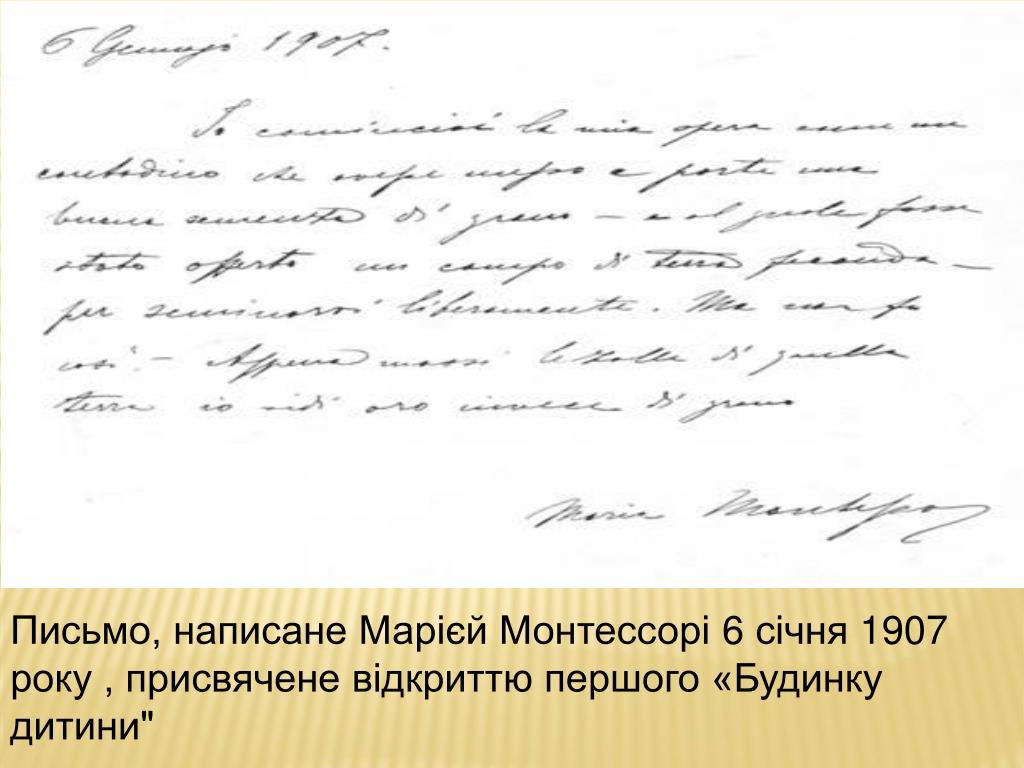 6 Gennajo 1907.
Io cominciai la mia opera come un
contadino che avesse a parte una
buona semenza di grano – e al quale fosse
stato offerto un campo di terra feconda –
per seminarvi liberamente. Ma non fu
così. – Appena mossi le zolle di quella
terra io vidi oro invece di grano
Maria Montessori
Письмо, написане Марієй Монтессорі 6 січня 1907
року , присвячене відкриттю першого «Будинку
дитини"